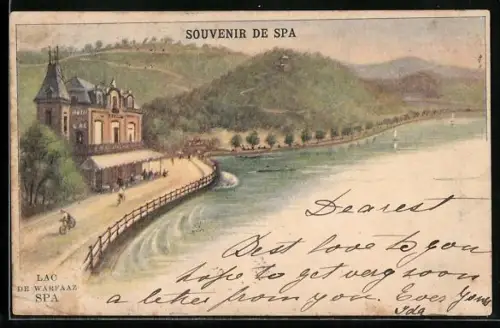 SOUVENIR DE SPA
LAC
DE WARFAAZ
SPA
Dearest
Best love to you
hope to get very soon
a letter from you. Ever Yours
Ida